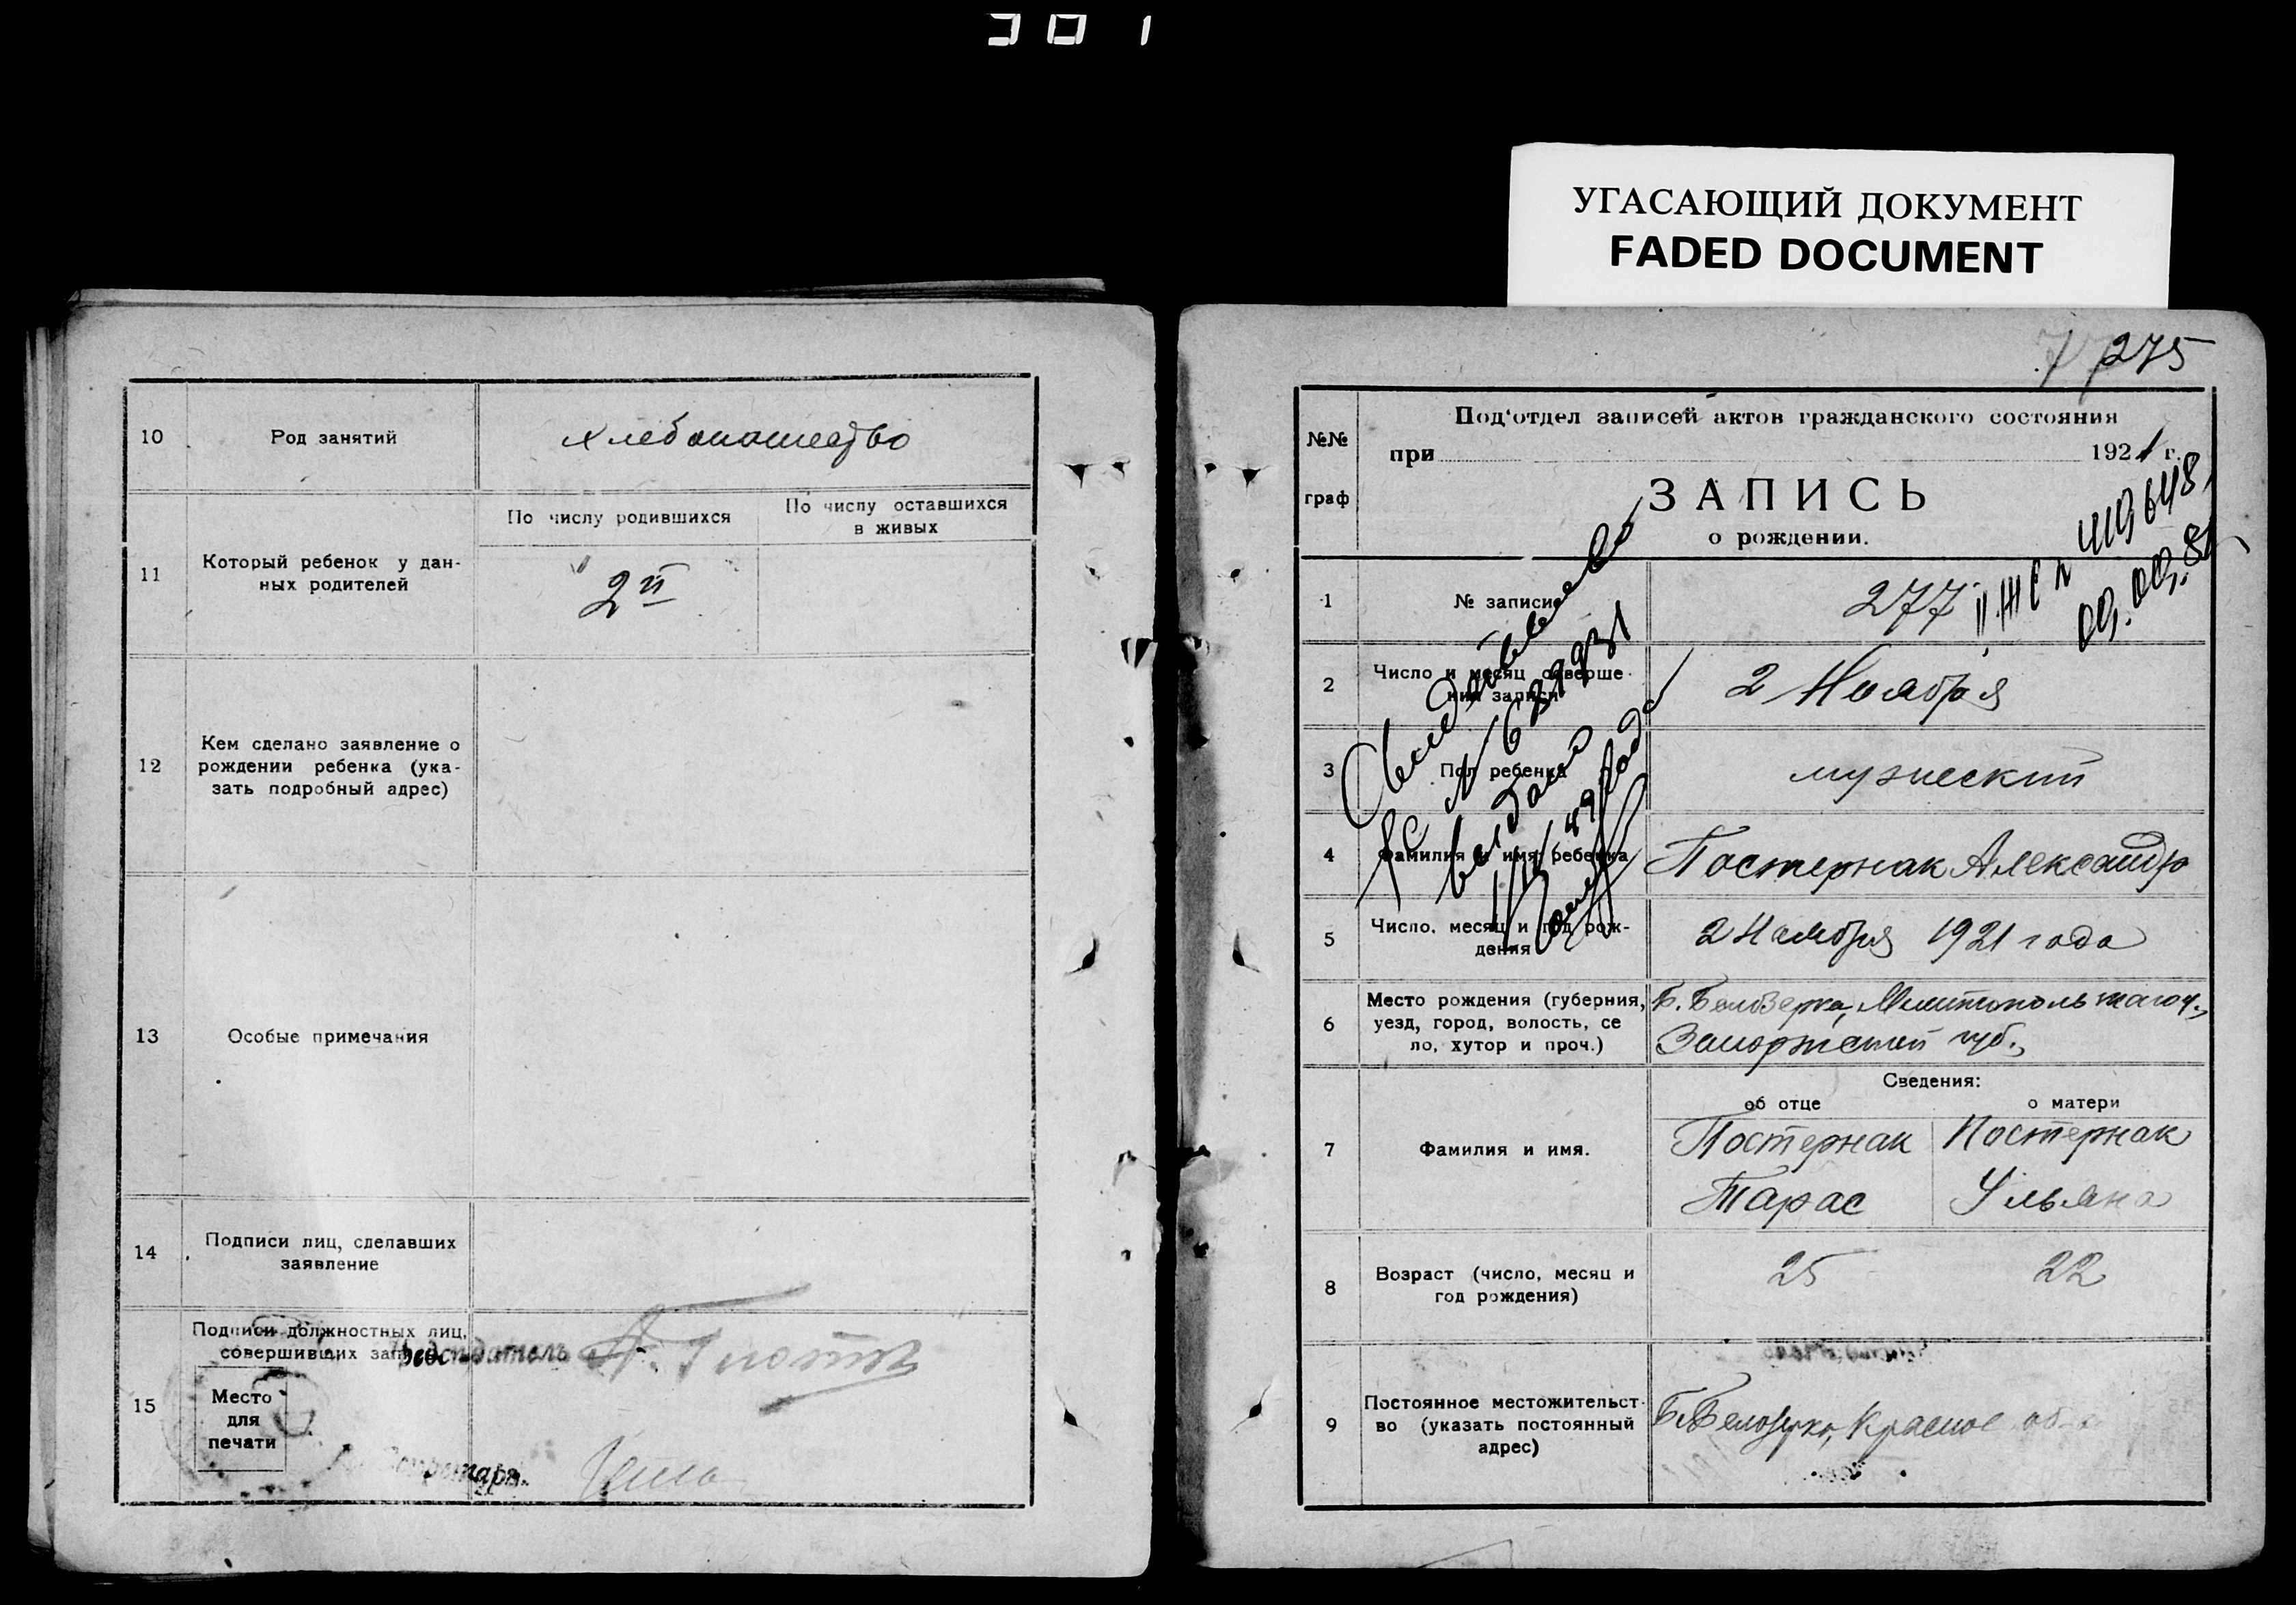 381
УГАСАЮЩИЙ ДОКУМЕНТ
FADED DOCUMENT
10
Род занятий
хлебопашество
11
Который ребенок у дан-
ных родителей
По числу родившихся
По числу оставшихся
в живых
2й
12
Кем сделано заявление о
рождении ребенка (ука-
зать подробный адрес)
13
Особые примечания
14
Подписи лиц, сделавших
заявление
15
Подписи должностных лиц,
совершивших запись
Председатель
Место
для
печати
Секретарь
275
№№
граф
Под'отдел записей актов гражданского состояния
при 1921 г.
ЗАПИСЬ
о рождении.
1
№ записи
277
2
Число и месяц соверше-
ния записи
2 Ноября
3
Пол ребенка
мужеский
4
Фамилия и имя ребенка
Постернак Александр
5
Число, месяц и год рож-
дения
2 Ноября 1921 года
6
Место рождения (губерния,
уезд, город, волость, се
ло, хутор и проч.)
Б. Белозерка,
губ.,
Сведения:
об отце
о матери
7
Фамилия и имя.
Постернак
Тарас
Постернак
Ульяна
8
Возраст (число, месяц и
год рождения)
25
22
9
Постоянное местожительст-
во (указать постоянный
адрес)
Б. Белозерка, Красное
Свидетельство
выдано